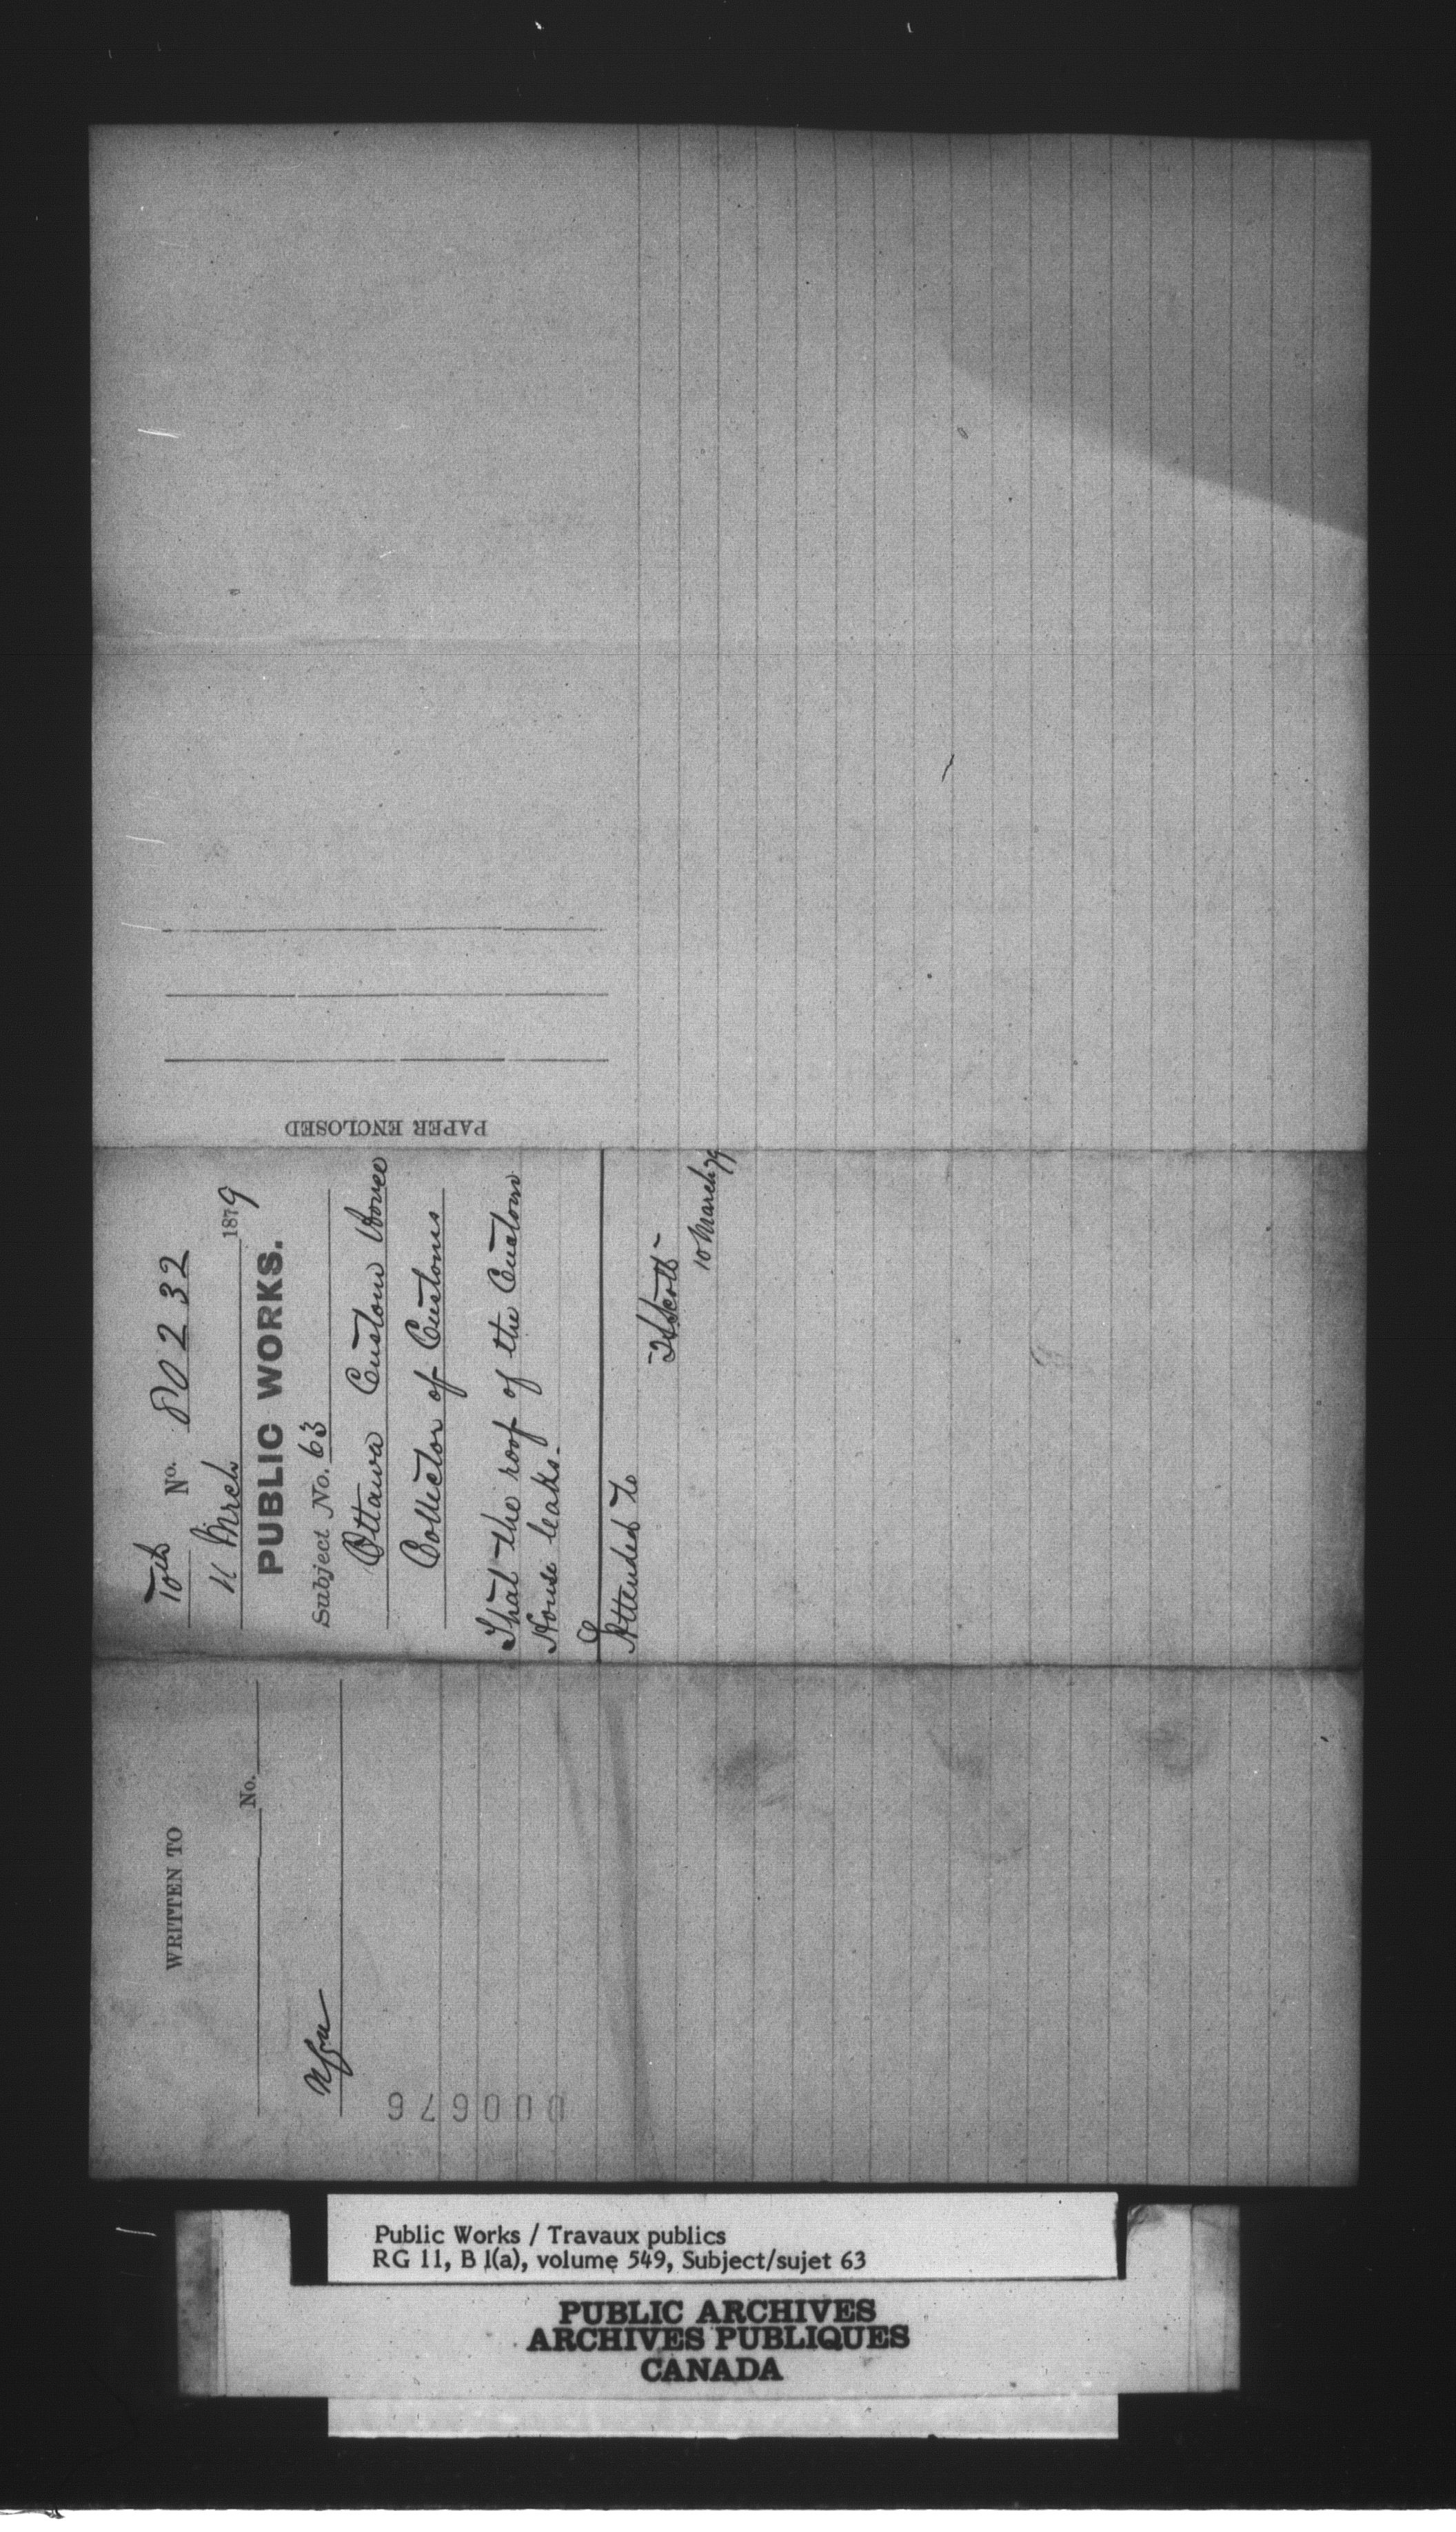 PAPER ENCLOSED
10th No. 80232
11 March 1879
PUBLIC WORKS.
Subject No. 63
Ottawa Custom House
Collector of Customs
That the roof of the Custom
House leaks.
Attended to
TSScott
10 March 79
WRITTEN TO
No.
000676
Public Works / Travaux publics
RG 11, B 1(a), volume 549, Subject/sujet 63
PUBLIC ARCHIVES
ARCHIVES PUBLIQUES
CANADA